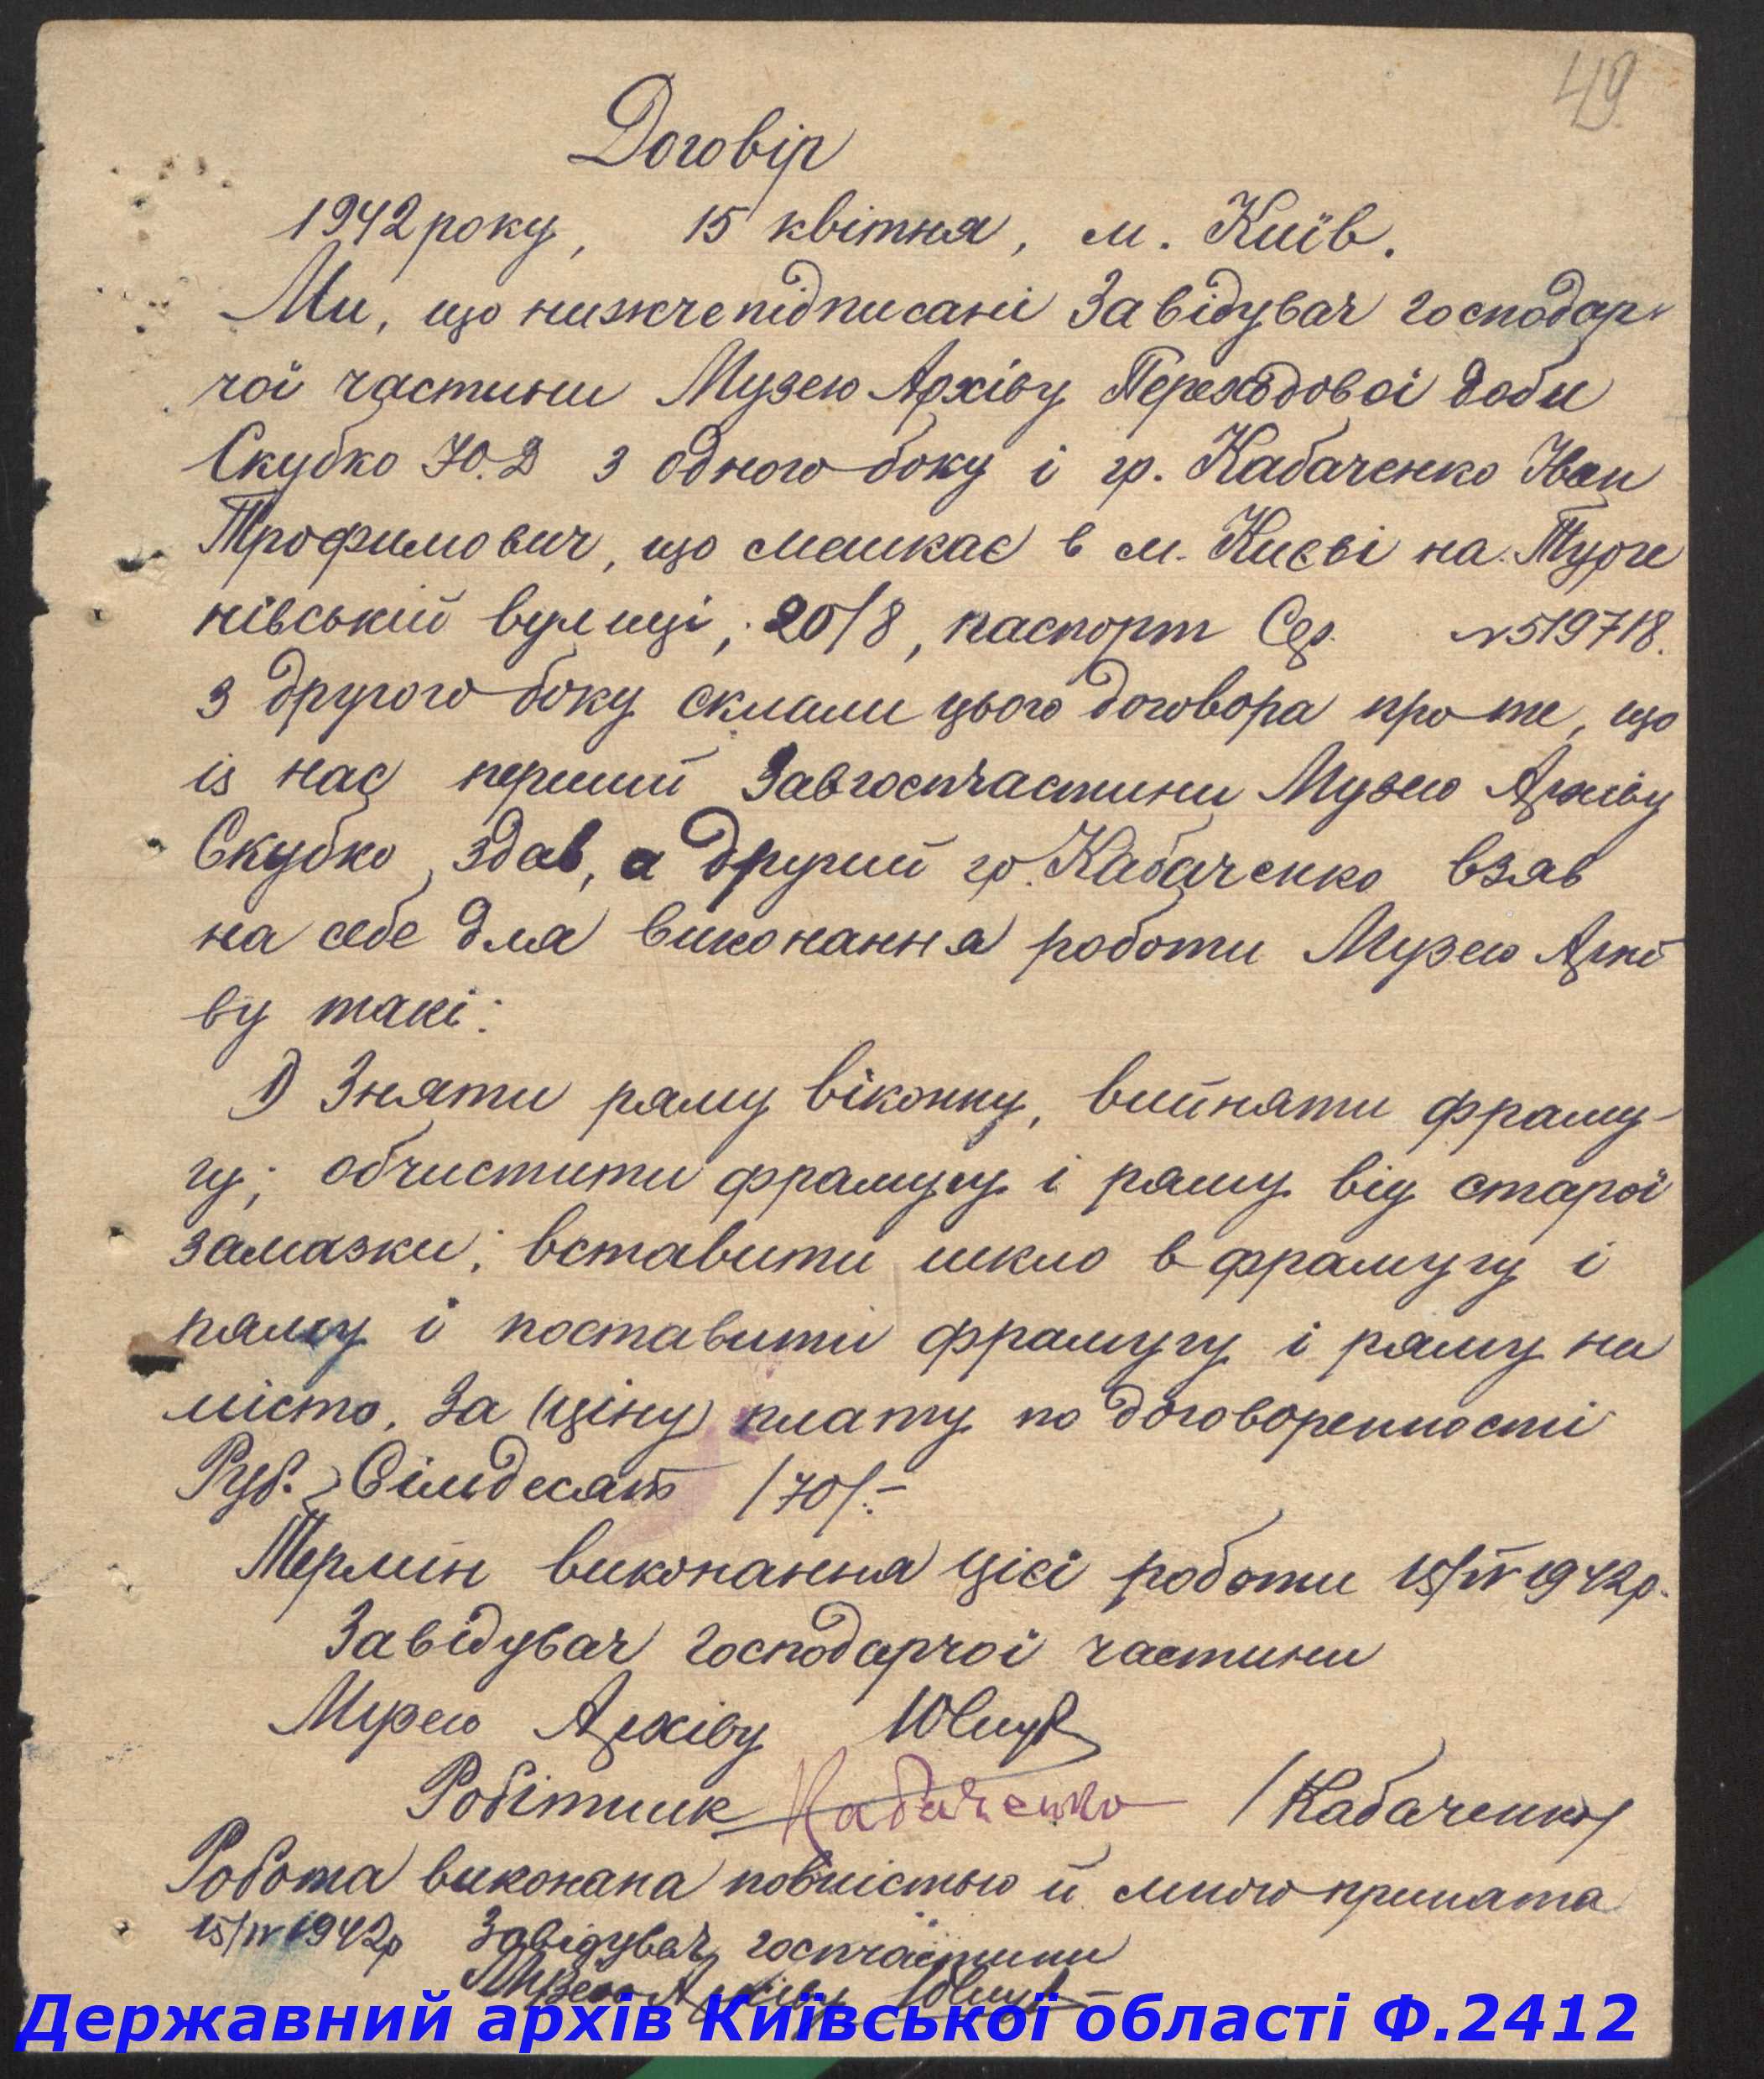 49
Договір
1942 року, 15 квітня, м. Київ.
Ми, що нижчепідписані Завідувач господар-
чої частини Музею Архіву Переходової доби
Скубко Ю.Д з одного боку і гр. Кабаченко Іван
Трофимович, що мешкає в м. Києві на Турге
нівській вулиці, 20/8, паспорт Сер. №519718.
з другого боку склали цього договора про те, що
із нас перший Завгоспчастини Музею Архіву
Скубко здав, а другий гр. Кабаченко взяв
на себе для виконання роботи Музею Архі
ву такі:
1) Зняти раму віконну, вийняти фраму-
гу; обчистити фрамугу і раму від старої
замазки; вставити шкло в фрамугу і
раму і поставити фрамугу і раму на
місто. За (ціну) плату по договоренности
Руб. Сімдесят /70/.-
Термін виконання цієї роботи 15/IV 1942р.
Завідувач господарчої частини
Музею Архіву
Робітник Кабаченко /Кабаченко/
Робота виконана повністью й мною принята
15/IV 1942р Завідувач госпчастини
Музею Архіву
Державний архів Київської області Ф.2412